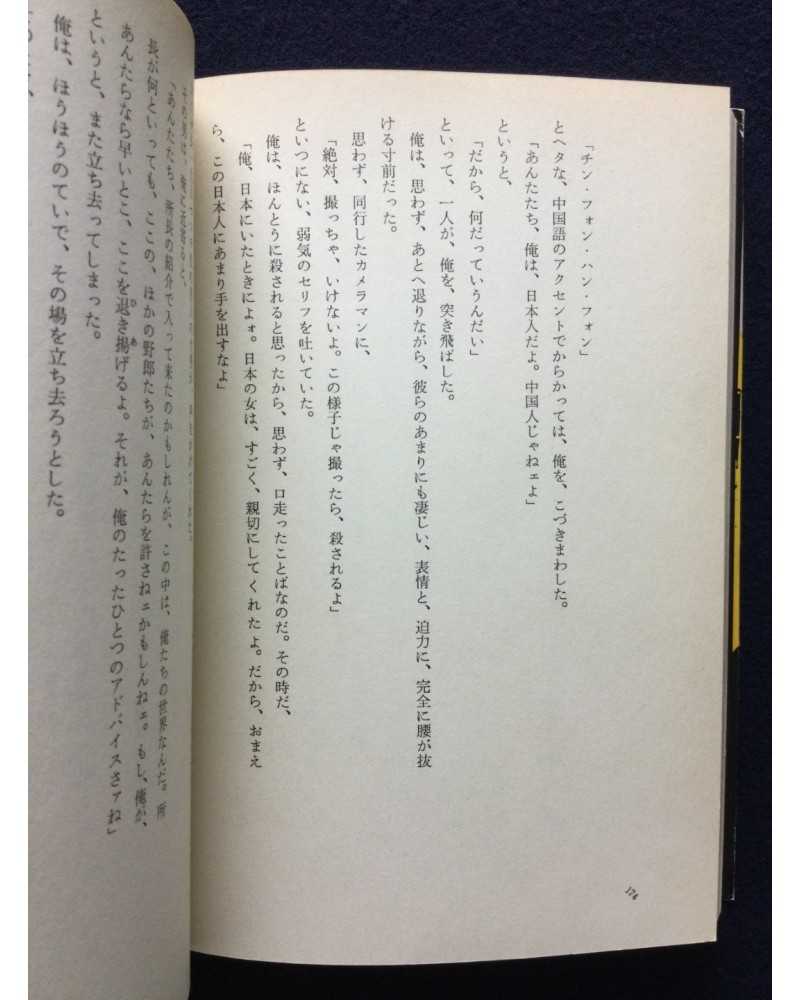 「チン・フォン・ハン・フォン」
とヘタな、中国語のアクセントでからかっては、俺を、こづきまわした。
「あんたたち、俺は、日本人だよ。中国人じゃねェよ」
というと、
「だから、何だっていうんだい」
といって、一人が、俺を、突き飛ばした。
俺は、思わず、あとへ退りながら、彼らのあまりにも凄じい、表情と、迫力に、完全に腰が抜
ける寸前だった。
思わず、同行したカメラマンに、
「絶対、撮っちゃ、いけないよ。この様子じゃ撮ったら、殺されるよ」
といつにない、弱気のセリフを吐いていた。
俺は、ほんとうに殺されると思ったから、思わず、口走ったことばなのだ。その時だ、
「俺、日本にいたときによォ。日本の女は、すごく、親切にしてくれたよ。だから、おまえ
ら、この日本人にあまり手を出すなよ」
174
「あんたたち、所長の紹介で入って来たのかもしれんが、この中は、俺たちの世界なんだ。所
長が何といっても、ここの、ほかの野郎たちが、あんたらを許さねェかもしんねェ。もし、俺が、
あんたらなら早いとこ、ここを退き揚げるよ。それが、俺のたったひとつのアドバイスさァね」
というと、また立ち去ってしまった。
俺は、ほうほうのていで、その場を立ち去ろうとした。